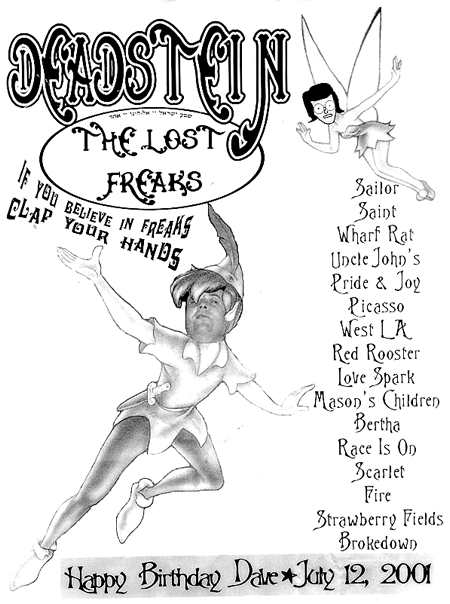 DEADSTEIN
שמע ישראל יי אלהינו יי אחד
THE LOST
FREAKS
IF YOU BELIEVE IN FREAKS
CLAP YOUR HANDS
Sailor
Saint
Wharf Rat
Uncle John's
Pride & Joy
Picasso
West LA
Red Rooster
Love Spark
Mason's Children
Bertha
Race Is On
Scarlet
Fire
Strawberry Fields
Brokedown
Happy Birthday Dave★July 12, 2001